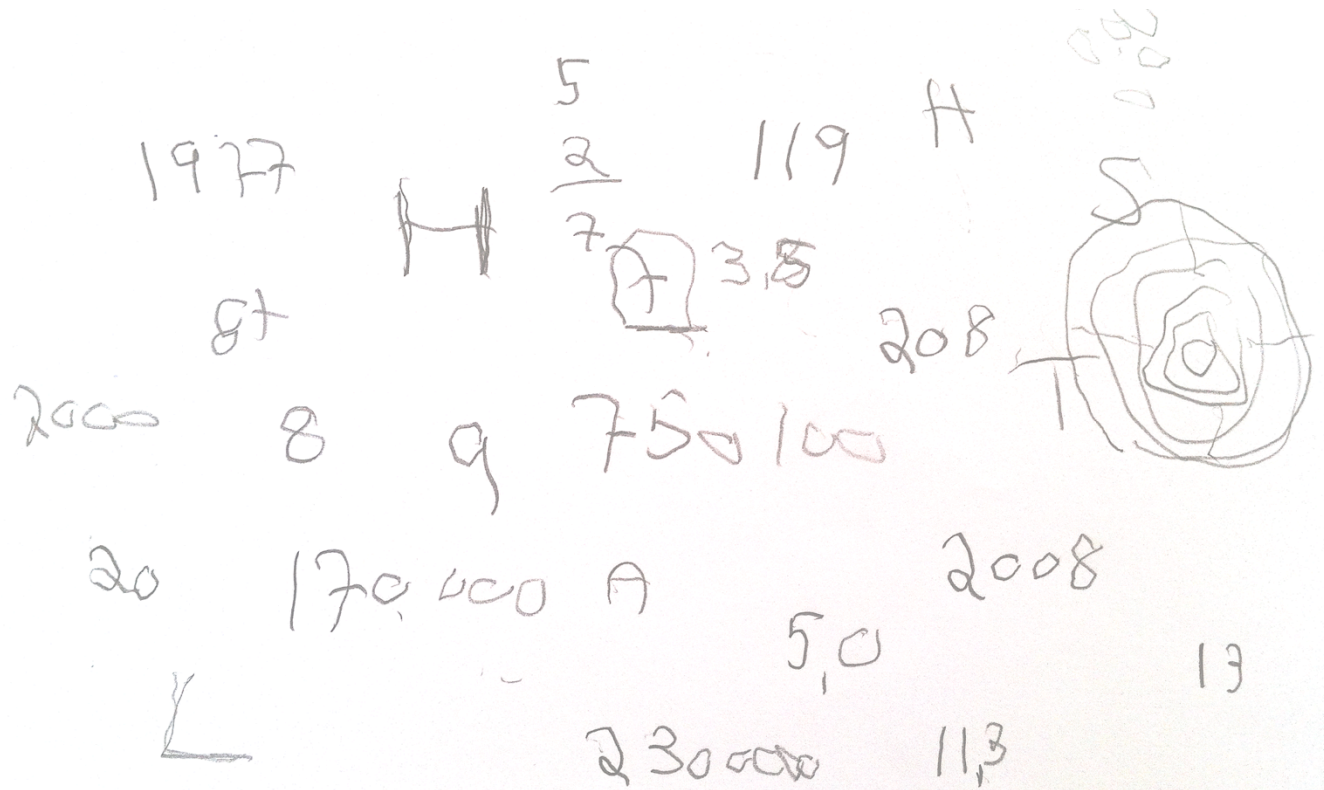 5
1977
2
119
H
H
7
7
3,5
S
8t
208
T
2000
8
9
750
100
20
170.000
A
2008
5,0
13
L
230000
11,3